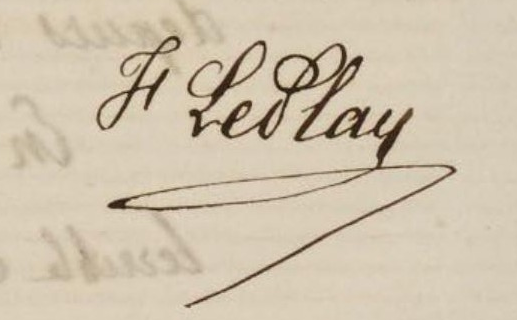 F LePlay